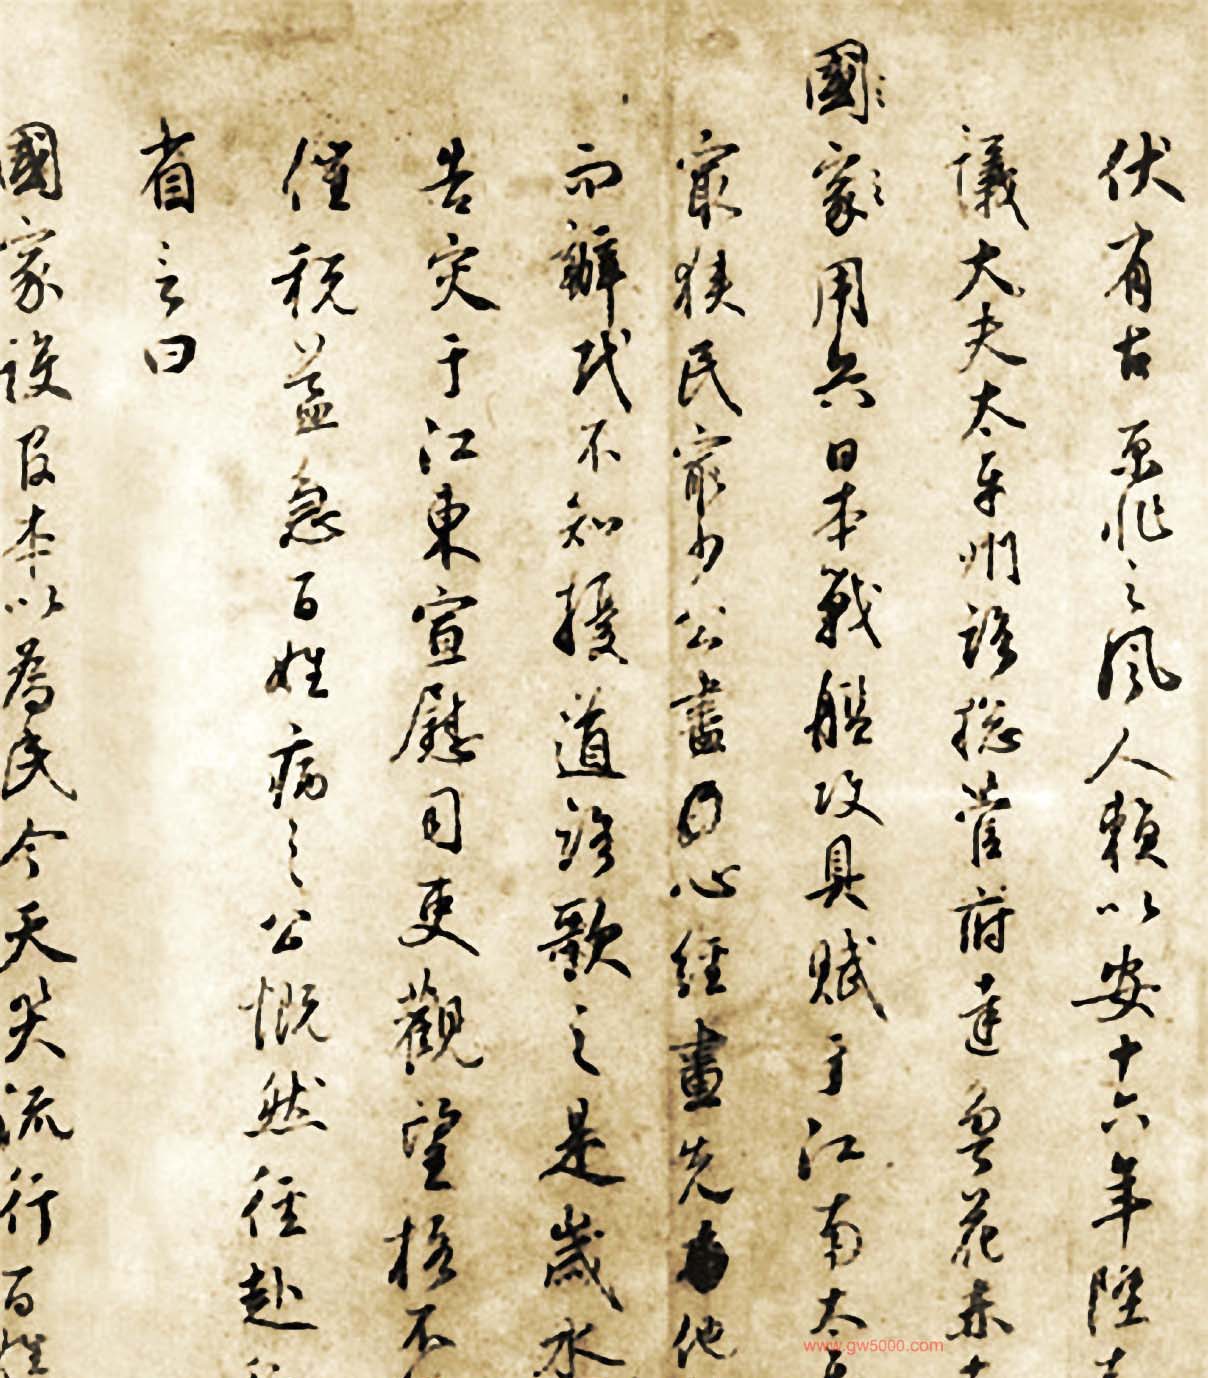 伏有古原非之風人賴以安十六年陞
議大夫太平州路總管府達魯花赤
國家用兵日本戰艦攻具賦于江南太平
寂狹民窮少公盡心經畫先他
而辦民不知擾道路歌之是歲水
告灾于江東宣慰司更觀望格不
催稅益急百姓病之公慨然徑赴
省言曰
國家設官本以為民今天灾流行百姓
www.gw5000.com